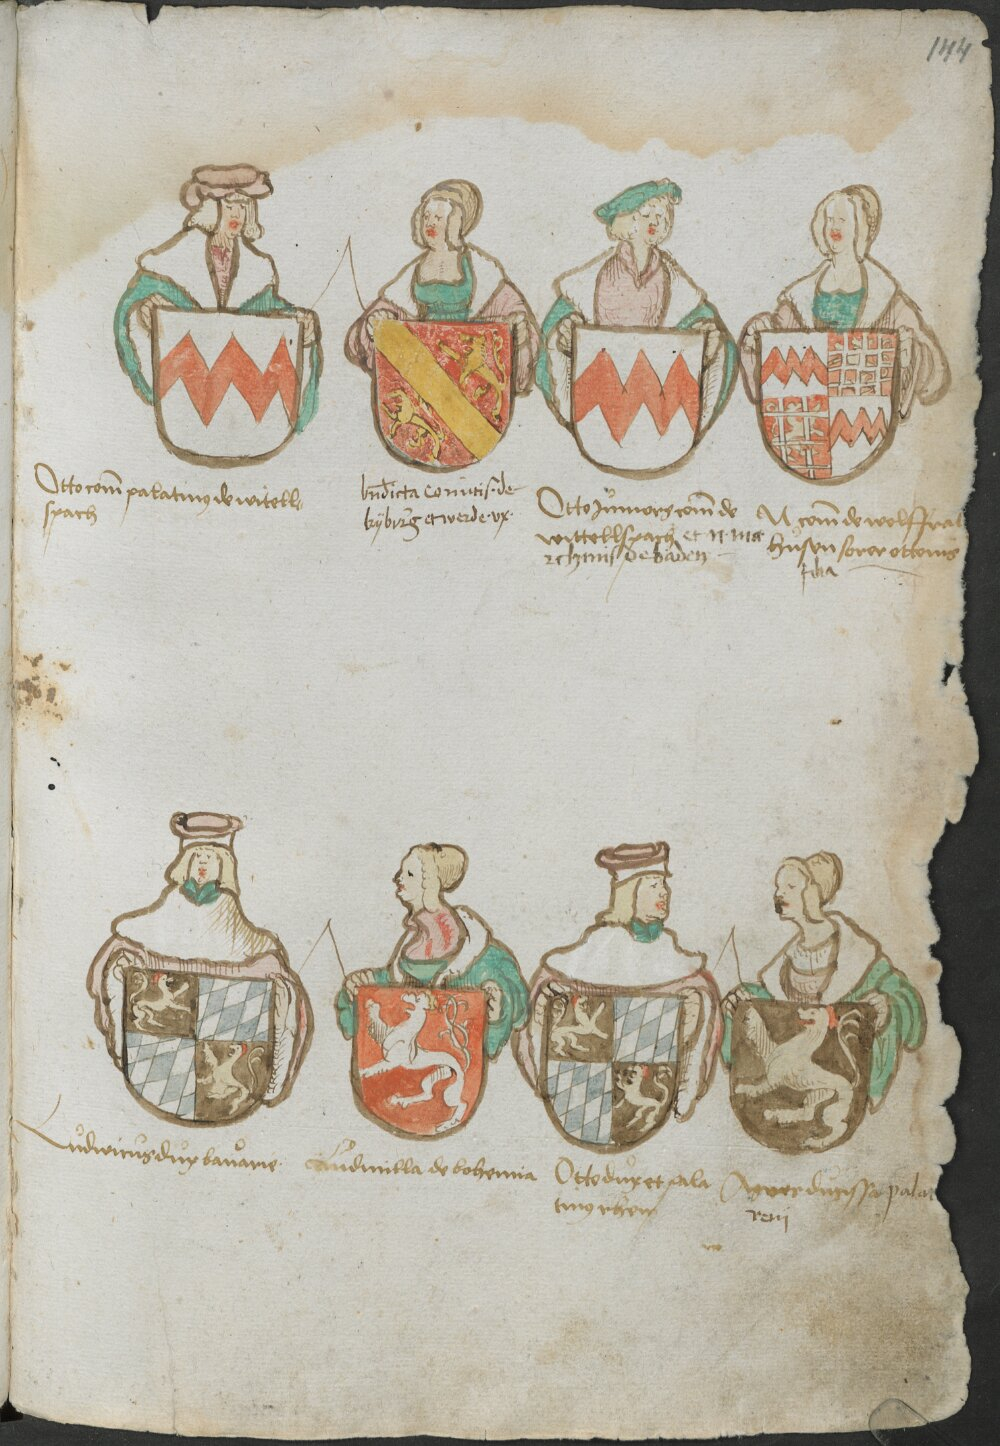 144
Otto com palatinus de witells
spach
bndicta Comitis de
kyburg et werde vx
Otto Junior com de
wittellspach et N mar
rchinis de baden
N com de wolffrat
husen soror ottonis
filia
Ludwicus dux bavarie
Ludmilla de bohemia
Otto dux et pala
tinus rheni
Agnes ducissa pala
reni